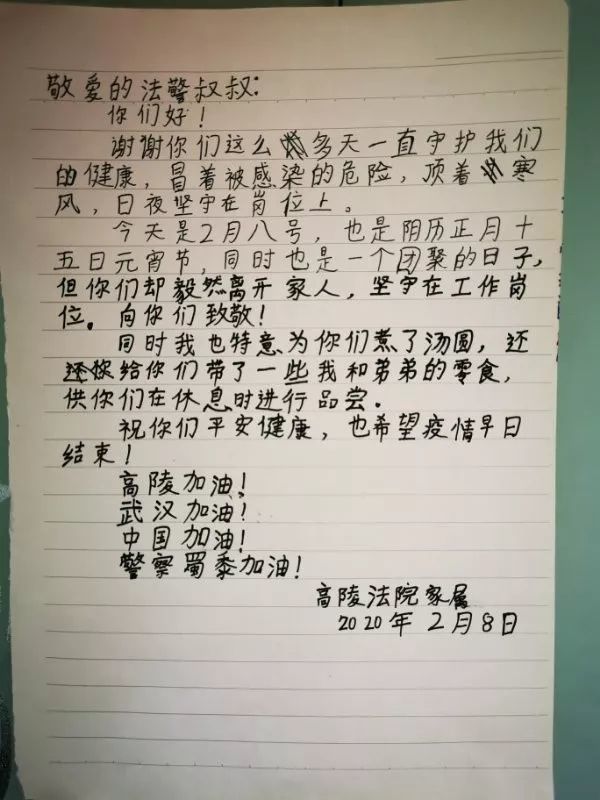 敬爱的法警叔叔:
你们好!
谢谢你们这么多天一直守护我们
的健康,冒着被感染的危险,顶着寒
风,日夜坚守在岗位上。
今天是2月八号,也是阴历正月十
五日元宵节,同时也是一个团聚的日子,
但你们却毅然离开家人,坚守在工作岗
位。向你们致敬!
同时我也特意为你们煮了汤圆,还
给你们带了一些我和弟弟的零食,
供你们在休息时进行品尝.
祝你们平安健康,也希望疫情早日
结束!
高陵加油!
武汉加油!
中国加油!
警察蜀黍加油!
高陵法院家属
2020年2月8日